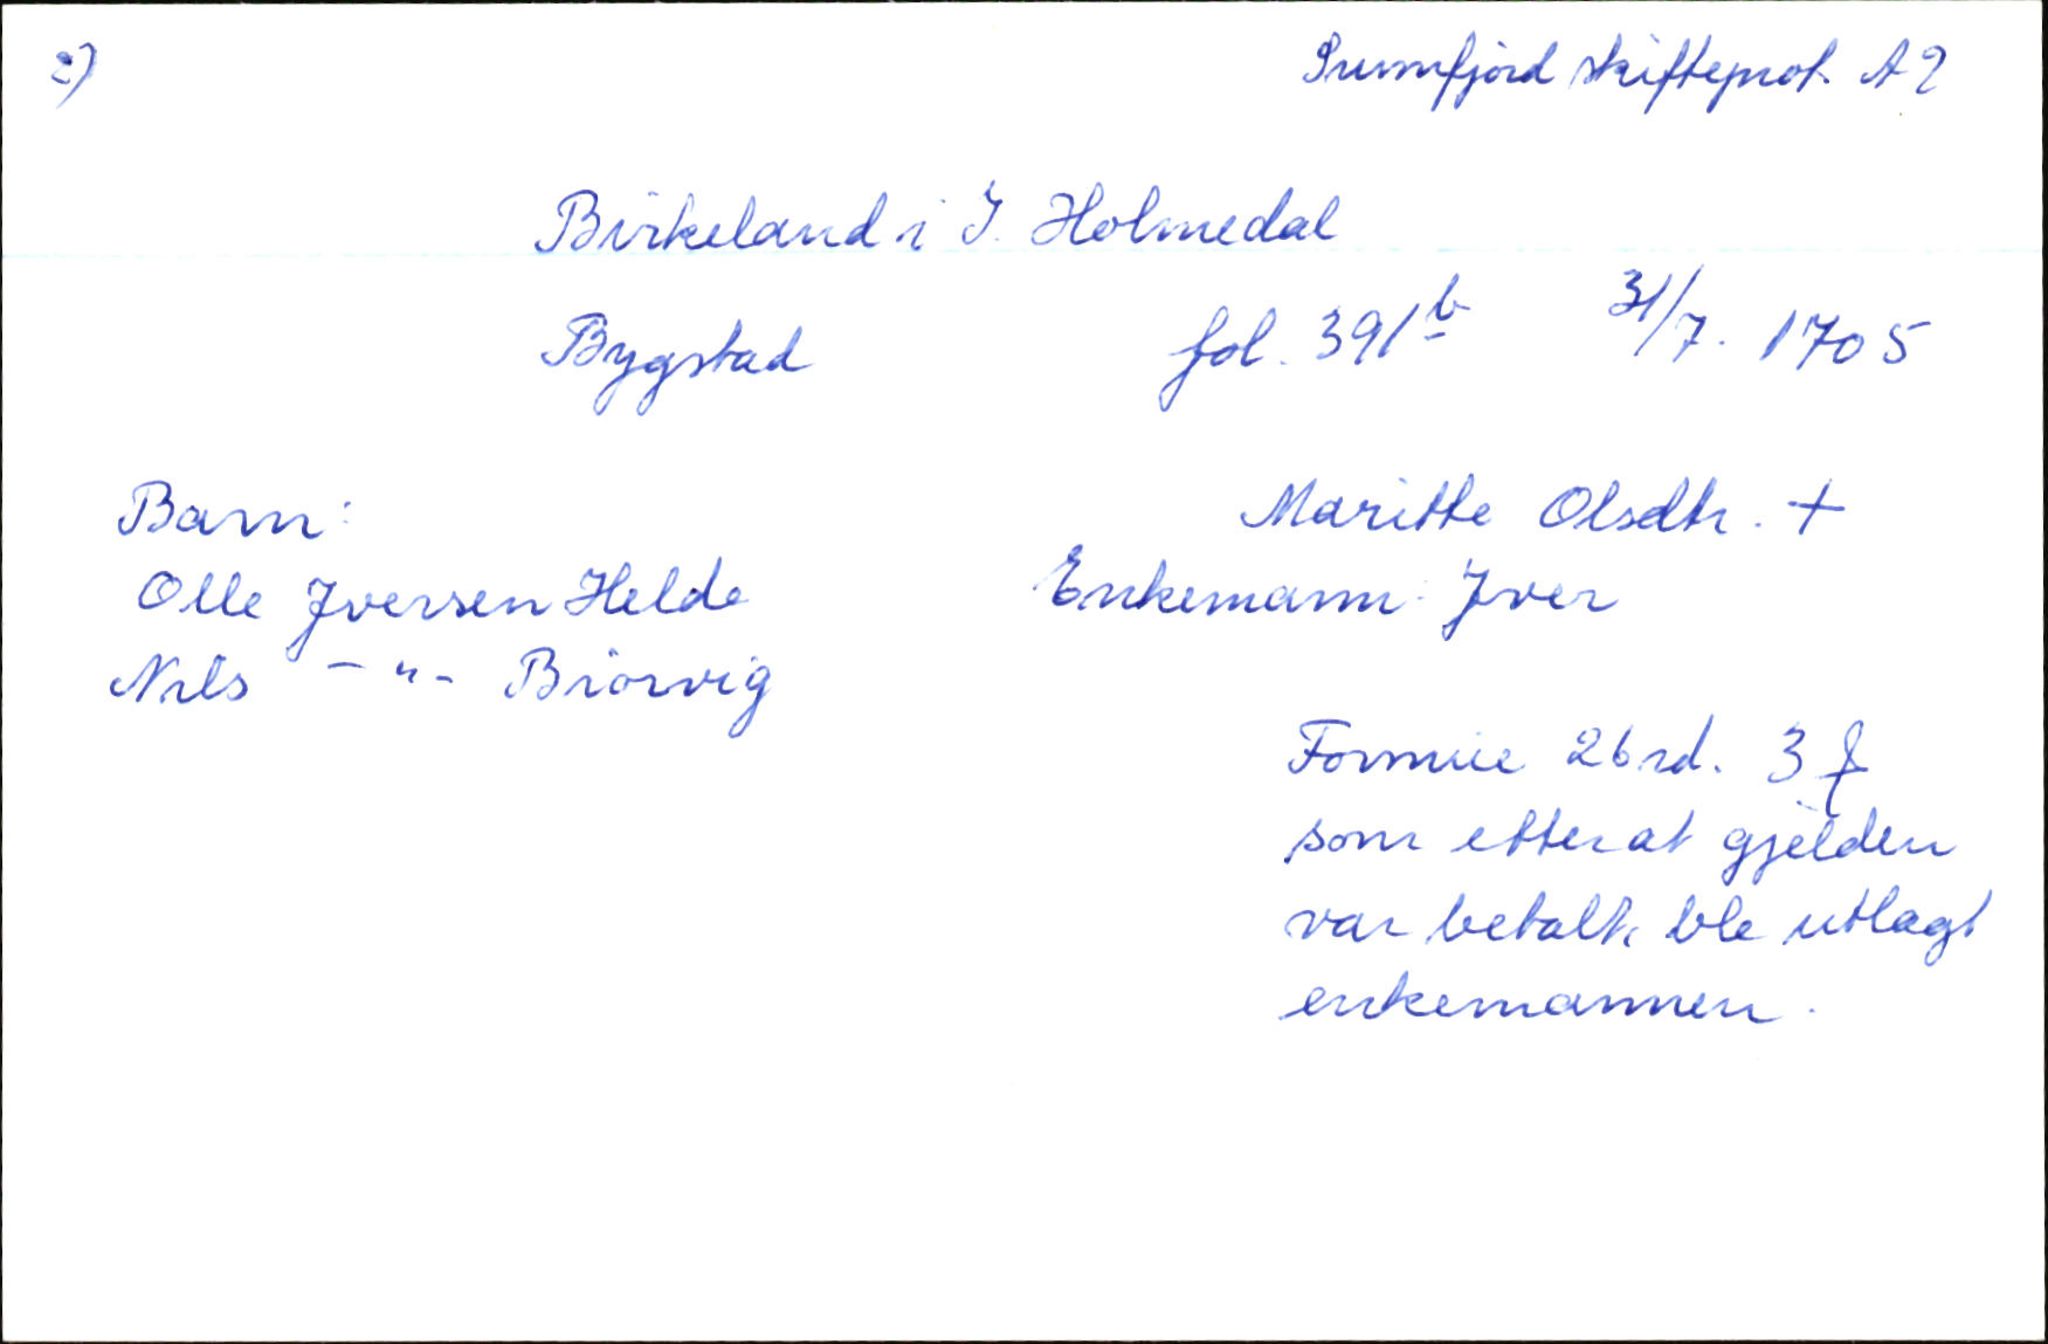 2)
Sunnfjord skifteprot. A2
Birkeland i Y. Holmedal
Bygstad fol. 391b 31/7. 1705
Barn:
Maritte Olsdtr. +
Olle Iversen Helde
Enkemann: Iver
Nils - " - Biørvig
Formue 26 rd. 3 ʄ
som etter at gjelden
var betalt, ble utlagt
enkemannen.